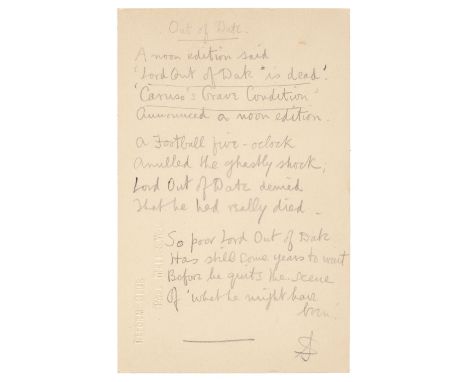 Out of Date.
A noon edition said
'Lord Out of Date "is dead'.
'Caruso's Grave Condition'
Announced a noon edition.
A Football five-oclock
Anulled the ghastly shock;
Lord Out of Date denied
That he had really died.
So poor Lord Out of Date
Has still some years to wait
Before he quits the scene
Of 'what he might have
been'.